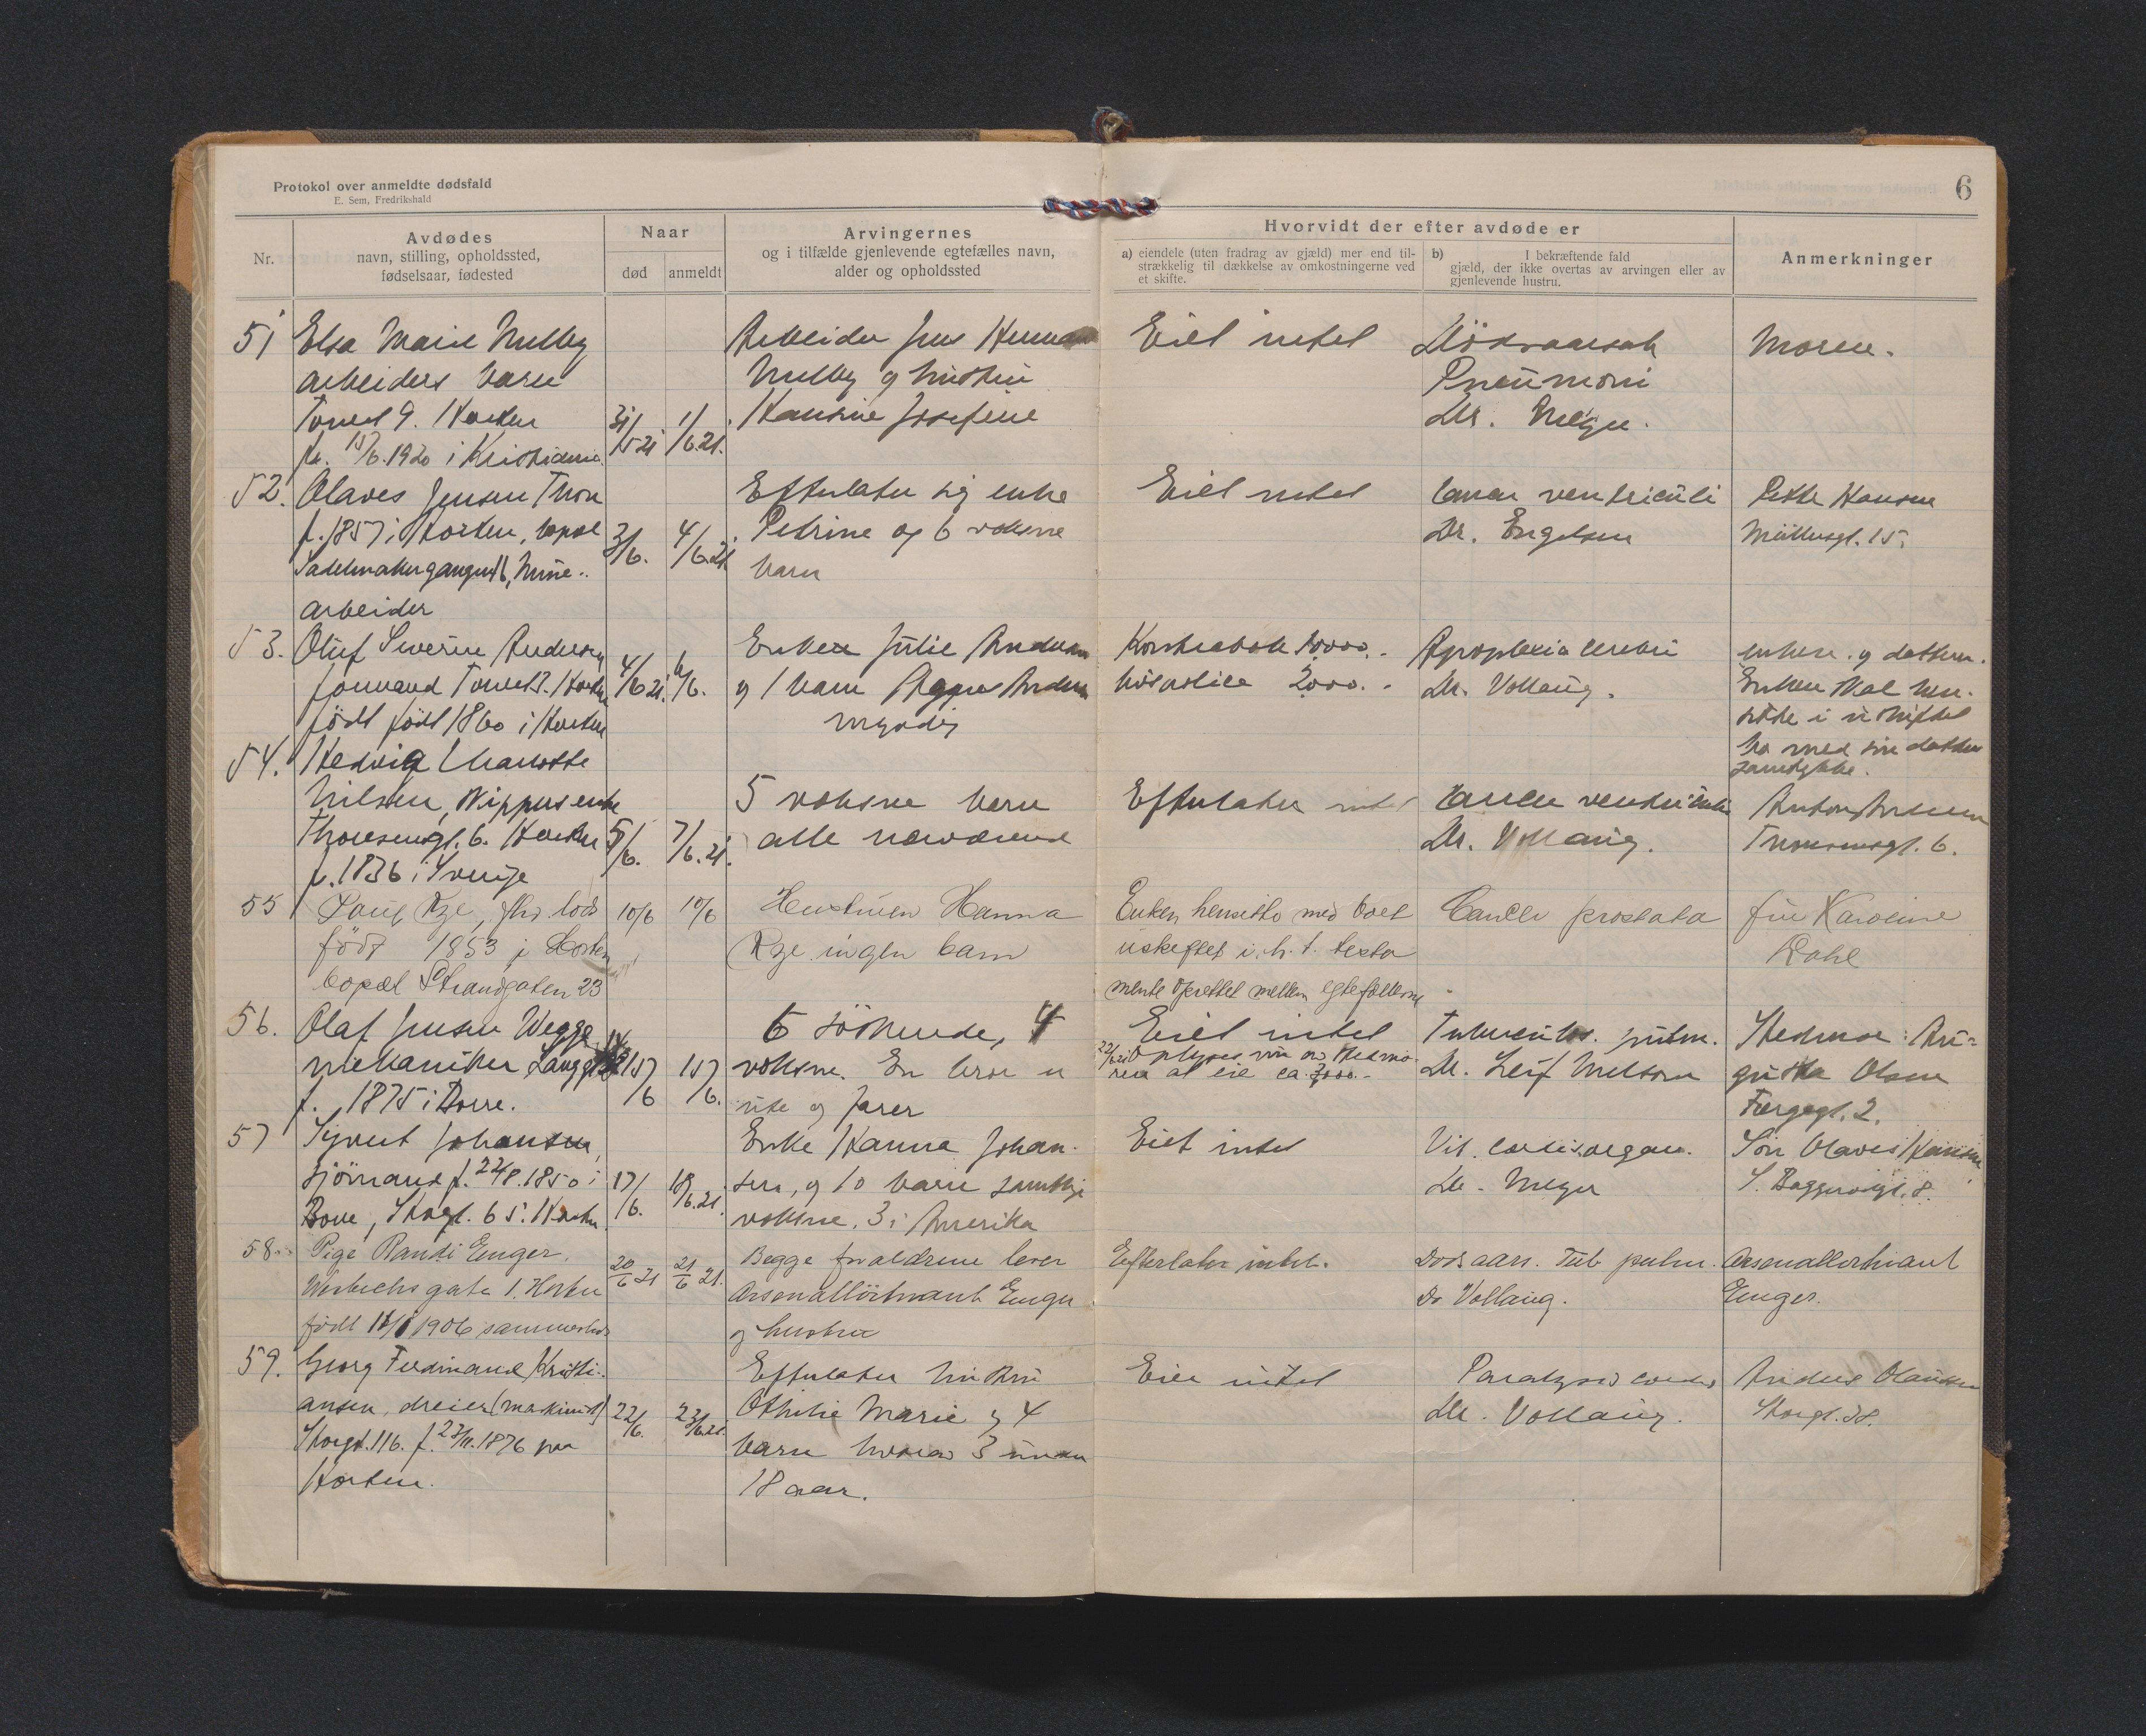 Protokol over anmeldte dødsfald
E. Sem, Fredrikshald
6
Nr.
Avdødes
navn, stilling, opholdssted,
fødselsaar, fødested
Naar
død
anmeldt
Arvingernes
og i tilfælde gjenlevende egtefælles navn,
alder og opholdssted
Hvorvidt der efter avdøde er
a) eiendele (uten fradrag av gjæld) mer end til-
strækkelig til dækkelse av omkostningerne ved
et skifte.
b) I bekræftende fald
gjæld, der ikke overtas av arvingen eller av
gjenlevende hustru.
Anmerkninger
51
Elsa Marie Melby
arbeiders barn
Torvet 9. Horten
f. 15/6.1920 i Kristiania
31/5 21
1/6.21.
Arbeider Jens
Melby og hustru
Hansine Josefine
Eiet intet
Dödsaarsak
Pneumoni
Dr. Meyer.
Moren.
52.
Olaves Jensen Thon
f. 1857 i Horten, bopæl
Sadelmakergangen, Mine-
arbeider
3/6.
4/6.21
Efterlater sig enke
Petrine og 6 voksne
barn
Eiet intet
Cancer ventriculi
Dr. Engelsen
Petter Hansen
Möllergt. 15.
53.
Oluf Severin Andersen
formand Torvet. Horten
födt födt 1860 i Horten
4/6 21.
6/6.
Enken Julie Andersen
og 1 barn Agnes Andersen
myndig
Kontrabok 10000.-
indbo 2000.-
Apoplexia cerebri
Dr. Vollaug.
enken og datteren.
Enken skal hen-
sitte i uskiftet
bo med sin datters
samtykke.
54.
Hedvig Charlotte
Nilsen, skippers enke
Thoresensgt. 6. Horten
f. 1836 i Sverige
5/6.
7/6.21.
5 voksne barn
alle nærværende
Efterlater intet
Cancer ventriculi
Dr. Vollaug.
Anton Andersen
Thoresensgt. 6.
55
Rye, fhv. lods
födt 1853 i Horten
bopæl Strandgaten 23
10/6
10/6
Hustruen Hanna
Rye ingen barn
Enken hensitte med boet
uskiftet i. h. t. testa
mente oprettet mellem egtefællerne
Cancer prostata
fru Karoline
Dahl
56.
Olaf Jensen Wegge
mekaniker
f. 1875 i Borre.
15/6
15/6.
6 söskende, 4
voksne. En bror er
ute og farer
Eiet intet
22/6 21 Oplyses nu av stedmo-
ren at eie ca. 3000.-
Tuberculos. pulm.
Dr. Leif Melsom
Stedmor: Au-
gusta Olsen
Færgegt. 2.
57
Sigvert Johansen,
sjömand f. 22/8.1850 i
Borre, Storgt. 65. Horten.
17/6.
18/6.21.
Enke Hanna Johan-
sen, og 10 barn samtlige
voksne. 3 i Amerika
Eiet intet
Vit. cordis. organ.
Dr. Meyer
Sön Olaves Hansen
S. Baggerødgt. 8.
58.
Pige Randi Enger.
gate 1. Horten
födt 1906 sammesteds
20/6 21
21/6 21.
Begge forældrene lever
Arsenallöitnant Enger
og hustru
Efterlater intet.
Dødsaars. Tub pulm.
Dr Vollaug.
Arsenalløitnant
Enger.
59.
Georg Ferdinand Kristi-
ansen, dreier (maskinist)
Storgt. 116. f. 23/11.1876 paa
Horten.
22/6.
23/6.21.
Efterlater hustru
Othilie Marie og 4
barn hvorav 3 under
18 aar.
Eier intet
Paralysis cordis
Dr. Vollaug.
Anders Olausen
Storgt. 38.